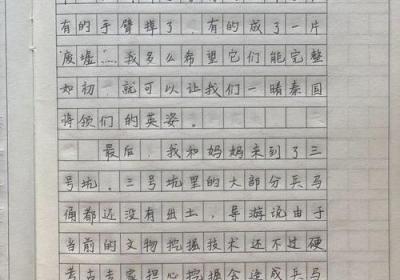 有的手臂掉了，有的成了一片
废墟……我多么希望它们能完整
如初，就可以让我们一睹秦国
将领们的英姿。
最后，我和妈妈来到了三
号坑。三号坑里的大部分兵马
俑都还没有出土，导游说由于
当前的文物挖掘技术还不过硬
考古专家担心挖掘会造成兵马